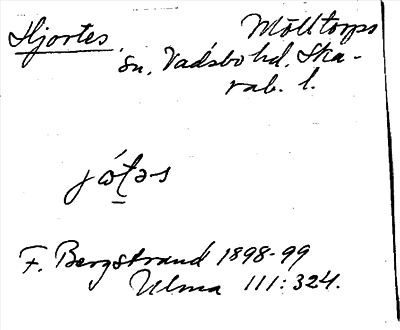 Hjortes. Mölltorps
sn, Vadsbo hd, Ska-
rab. l.
F. Bergstrand 1898-99
Ulma 111:324.